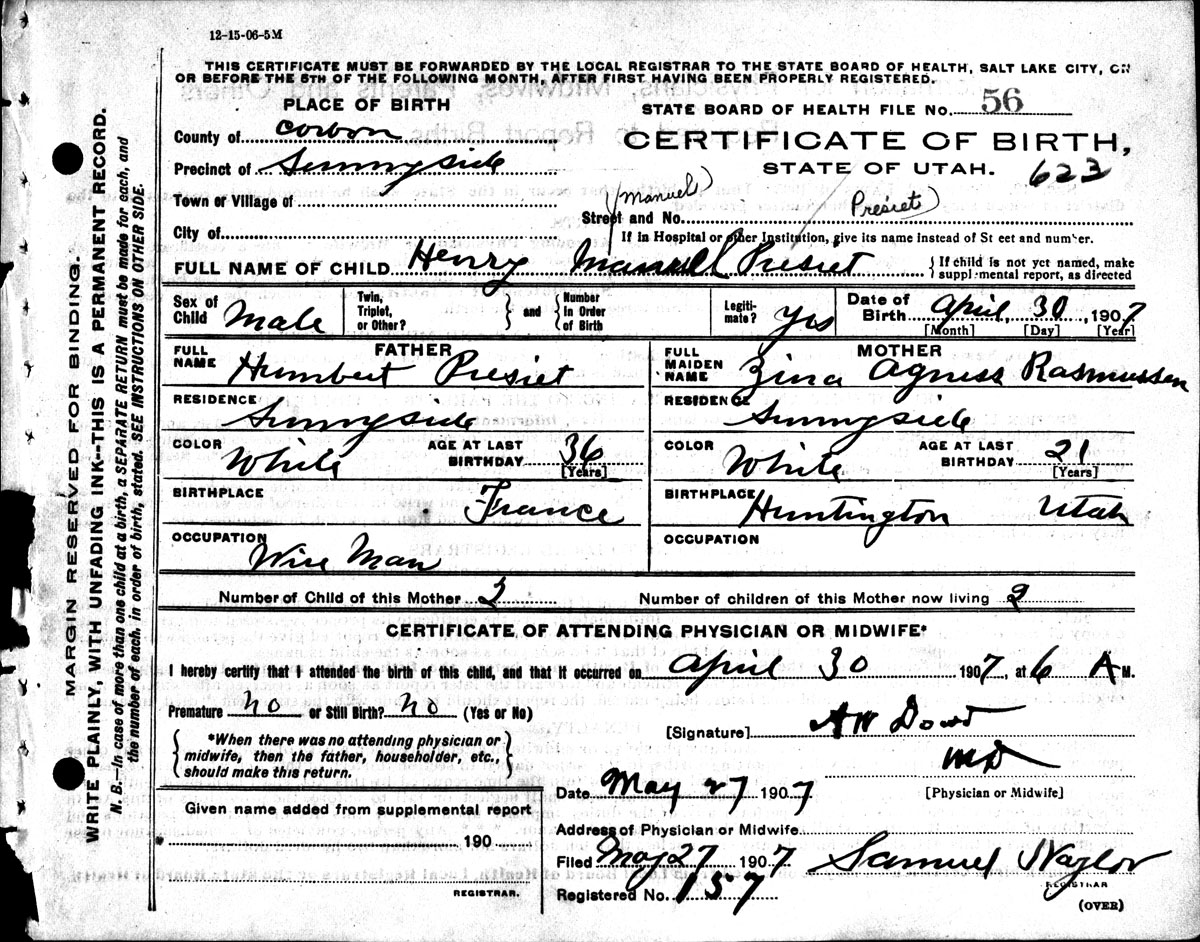 12-15-06-5M
THIS CERTIFICATE MUST BE FORWARDED BY THE LOCAL REGISTRAR TO THE STATE BOARD OF HEALTH, SALT LAKE CITY, ON
OR BEFORE THE 5TH OF THE FOLLOWING MONTH, AFTER FIRST HAVING BEEN PROPERLY REGISTERED.
PLACE OF BIRTH
STATE BOARD OF HEALTH FILE No. 56
County of Corbon
CERTIFICATE OF BIRTH,
Precinct of Sunnyside
STATE OF UTAH. 623
Town or Village of
(Manuel) Presiet)
Street and No.
City of
If in Hospital or other Institution, give its name instead of St eet and number.
FULL NAME OF CHILD Henry Manuell Presiet
{ If child is not yet named, make
supplemental report, as directed
Sex of Child Male
Twin, Triplet, or Other? } and { Number In Order of Birth
Legiti-mate? Yes
Date of Birth April 30, 1907
[Month] [Day] [Year]
FATHER
FULL NAME Humbert Presiet
RESIDENCE Sunnyside
COLOR White AGE AT LAST BIRTHDAY 36
[Years]
BIRTHPLACE France
OCCUPATION Wire Man
MOTHER
FULL MAIDEN NAME Zina Agness Rasmussen
RESIDENCE Sunnyside
COLOR White AGE AT LAST BIRTHDAY 21
[Years]
BIRTHPLACE Huntington Utah
OCCUPATION
Number of Child of this Mother 2 Number of children of this Mother now living 2
CERTIFICATE OF ATTENDING PHYSICIAN OR MIDWIFE*
I hereby certify that I attended the birth of this child, and that it occurred on April 30 1907, at 6 A M.
Premature No or Still Birth? No (Yes or No)
{ *When there was no attending physician or
midwife, then the father, householder, etc.,
should make this return. }
[Signature] A W Dowd
MD
[Physician or Midwife]
Date May 27 1907
Given name added from supplemental report
190
REGISTRAR.
Address of Physician or Midwife
Filed May 27 1907 Samuel Naylor
REGISTRAR
Registered No. 157
(OVER)
MARGIN RESERVED FOR BINDING.
WRITE PLAINLY, WITH UNFADING INK--THIS IS A PERMANENT RECORD.
N. B.—In case of more than one child at a birth, a SEPARATE RETURN must be made for each, and
the number of each, in order of birth, stated. SEE INSTRUCTIONS ON OTHER SIDE.